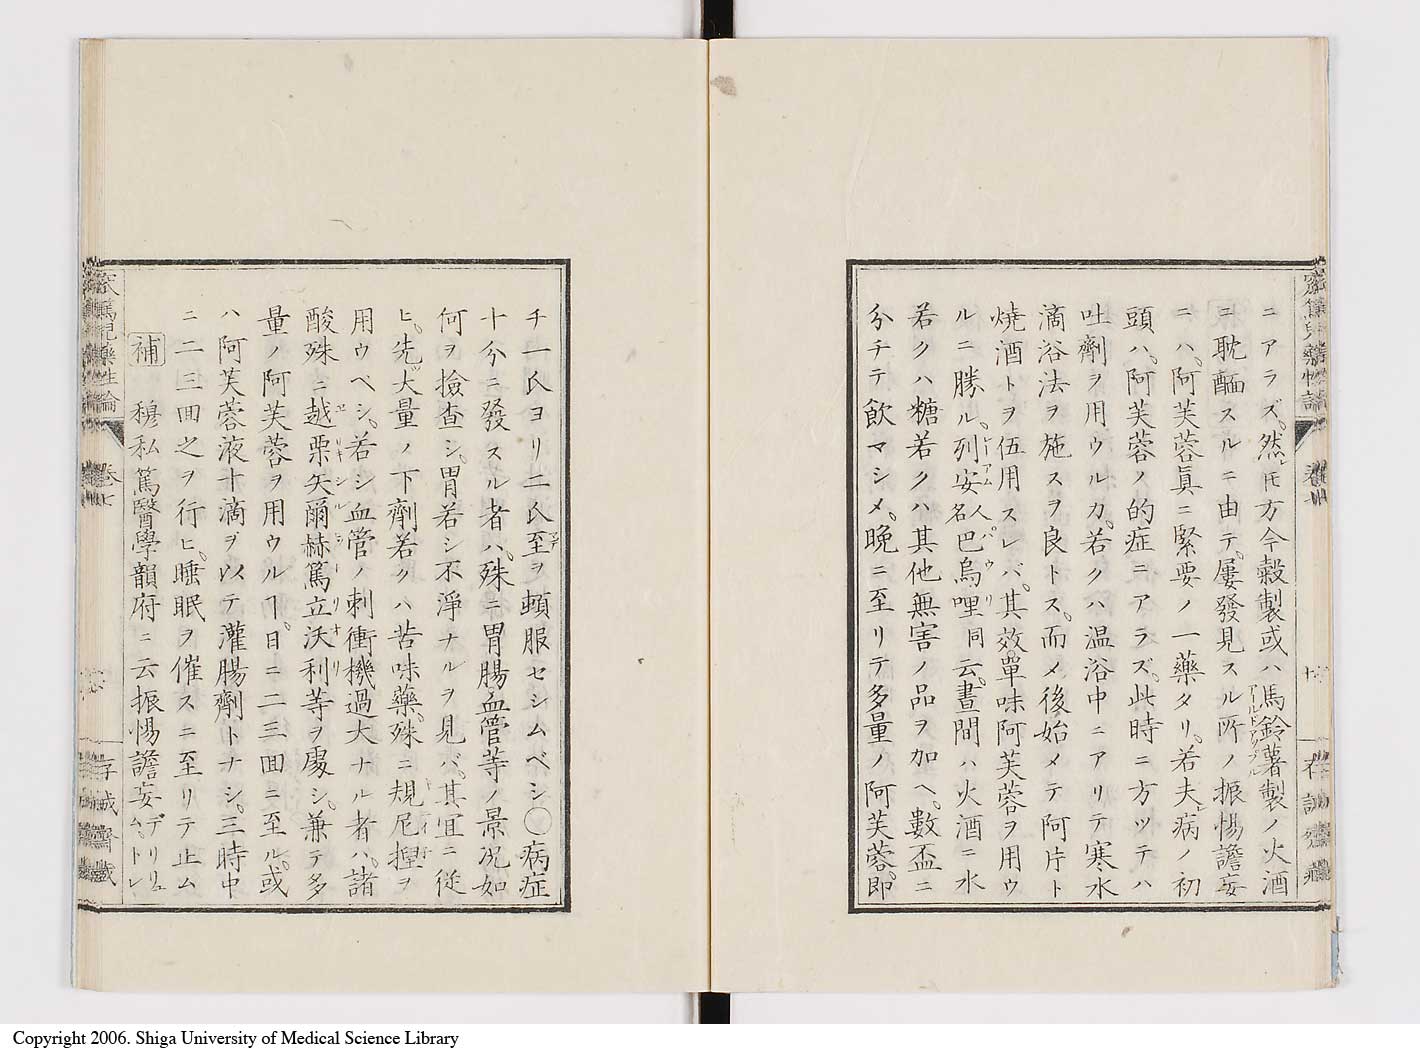 ニアラズ。然ルニ㐧方今穀製或ハ馬鈴薯製ノ火酒
アールドアップル
ニ耽湎スルニ由テ。屢發見スル所ノ振惕譫妄
ニハ。阿芙蓉眞ニ緊要ノ一藥タリ。若夫レ病ノ初
頭ハ。阿芙蓉ノ的症ニアラズ。此時ニ方ツテハ
吐劑ヲ用ウルカ。若クハ温浴中ニアリテ寒水
滴浴法ヲ施スヲ良トス。而メ後始メテ阿片ト
燒酒トヲ伍用スレバ。其效單味阿芙蓉ヲ用ウ
ルニ勝ル。列安人名巴烏哩同云。晝間ハ火酒ニ水
若クハ糖若クハ其他無害ノ品ヲ加ヘ。數盃ニ
分チテ飲マシメ。晩ニ至リテ多量ノ阿芙蓉。即
チ一氏ヨリ二氏至ヲ頓服セシムベシ〇病症
十分ニ發スル者ハ。殊ニ胃腸血管等ノ景況如
何ヲ撿査シ。胃若シ不淨ナルヲ見バ。其宜ニ從
ヒ。先ツ大量ノ下劑若クハ苦味藥。殊ニ規尼捏ヲ
用ウベシ。若シ血管ノ刺衝機過大ナル者ハ。諸
酸殊ニ越栗矢爾赫篤立沃利等ヲ處シ。兼テ多
量ノ阿芙蓉ヲ用ウルヿ。日ニ二三回ニ至ル。或
ハ阿芙蓉液十滴ヲ以テ灌腸劑トナシ。三時中
ニ二三回之ヲ行ヒ。睡眠ヲ催スニ至リテ止ム
補 穆私篤醫學韻府ニ云振惕譫妄。デリリュム。トレ
窊篤児藥性論
卷七
存誠齋藏